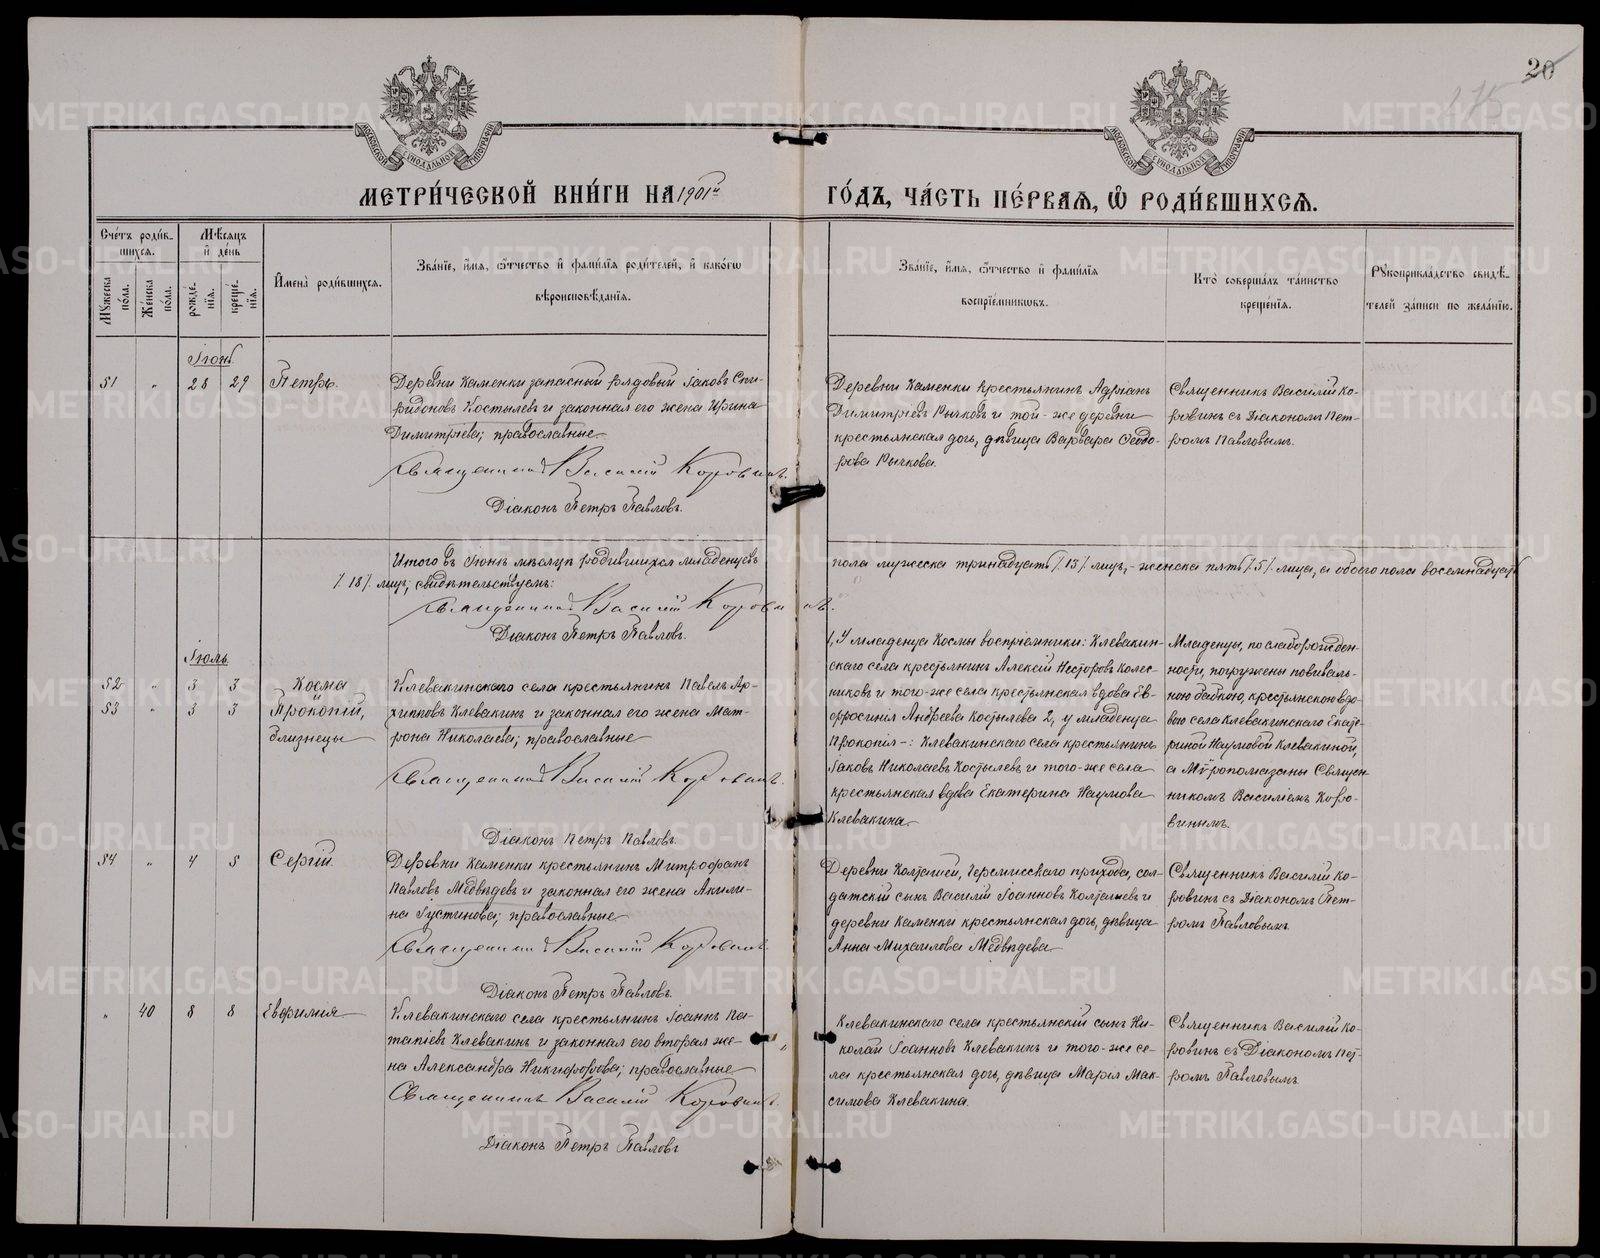 20
175
МОСКОВСКОЙ СѴНОДАЛЬНОЙ ТИПОГРАФІИ
МОСКОВСКОЙ СѴНОДАЛЬНОЙ ТИПОГРАФІИ
МЕТРИ́ЧЕСКОЙ КНИ́ГИ НА 1901й ГО́ДЪ, ЧА́СТЬ ПЕ́РВАѦ, Ѡ РОДИ́ВШИХСѦ.
Сче́тъ роди́в-
шихсѧ.
Мужеска по́ла.
Же́нска по́ла.
Мѣ́сѧцъ
и де́нь
рожде́-
нїѧ.
креще́-
нїѧ.
И҆мена̀ роди́вшихсѧ.
Зва́нїе, и҆́мѧ, ѻ҆́тчество и҆ фами́лїѧ роди́телей, и҆ како́гѡ
вѣроисповѣ́данїѧ.
Зва́нїе, и҆́мѧ, ѻ҆́тчество и҆ фами́лїѧ
воспрїе́мникѡвъ.
Кто̀ соверша́лъ та́инство
креще́нїѧ.
Рꙋкоприкла́дство свидѣ́-
телей за́писи по жела́нїю.
Іюнь.
51 „ 28 29 Петръ.
Деревни Каменки запасный рядовый Іаковъ Спи-
ридоновъ Костылевъ и законная его жена Ирина
Димитріева; православные
Священникъ Василій Коровинъ.
Діаконъ Петръ Павловъ.
Деревни Каменки крестьянинъ Адріанъ
Димитріевъ Рычковъ и той-же деревни
крестьянская дочь, дѣвица Варвара Ѳеодо-
рова Рычкова.
Священникъ Василій Ко-
ровинъ съ Діакономъ Пет-
ромъ Павловымъ.
Итого въ Іюнѣ мѣсяцѣ родившихся младенцевъ пола мужеска тринадцать /13/ лицъ,- женска пять /5/ лицъ, а обоего пола восемнадцать
/18/ лицъ, свидѣтельствуемъ:
Священникъ Василій Коровинъ.
Діаконъ Петръ Павловъ.
Іюль.
52 „ 3 3 Косма
53 „ 3 3 Прокопій,
близнецы
Клевакинскаго села крестьянинъ Павелъ Ар-
хиповъ Клевакинъ и законная его жена Мат-
рона Николаева; православные
Священникъ Василій Коровинъ.
Діаконъ Петръ Павловъ.
1, У младенца Космы воспріемники: Клевакин-
скаго села крестьянинъ Алексій Несторовъ Колес-
никовъ и того-же села крестьянская вдова Ев-
фросинія Андреева Костылева 2, у младенца
Прокопія-: Клевакинскаго села крестьянинъ
Іаковъ Николаевъ Костылевъ и того-же села
крестьянская вдова Екатерина Наумова
Клевакина.
Младенцы, по слаборожден-
ности, погружены повиваль-
ною бабкою, крестьянскою вдо-
вою села Клевакинскаго Екате-
риной Наумовой Клевакиной,
а Мѵропомазаны Священ-
никомъ Василіемъ Коро-
винымъ.
54 „ 4 5 Сергій.
Деревни Каменки крестьянинъ Митрофанъ
Павловъ Медвѣдевъ и законная его жена Акили-
на Іустинова; православные
Священникъ Василій Коровинъ.
Діаконъ Петръ Павловъ.
Деревни Колташей, Черемисскаго прихода, сол-
датскій сынъ Василій Іоанновъ Колташевъ и
деревни Каменки крестьянская дочь, дѣвица
Анна Михаилова Медвѣдева
Священникъ Василій Ко-
ровинъ съ Діакономъ Пет-
ромъ Павловымъ.
„ 40 8 8 Евфимія
Клевакинскаго села крестьянинъ Іоаннъ Па-
тапіевъ Клевакинъ и законная его вторая же-
на Александра Никифорова; православные
Священникъ Василій Коровинъ.
Діаконъ Петръ Павловъ
Клевакинскаго села крестьянскій сынъ Ни-
колай Іоанновъ Клевакинъ и того-же се-
ла крестьянская дочь, дѣвица Марія Мак-
симова Клевакина.
Священникъ Василій Ко-
ровинъ съ Діакономъ Пет-
ромъ Павловымъ.
METRIKI.GASO-URAL.RU